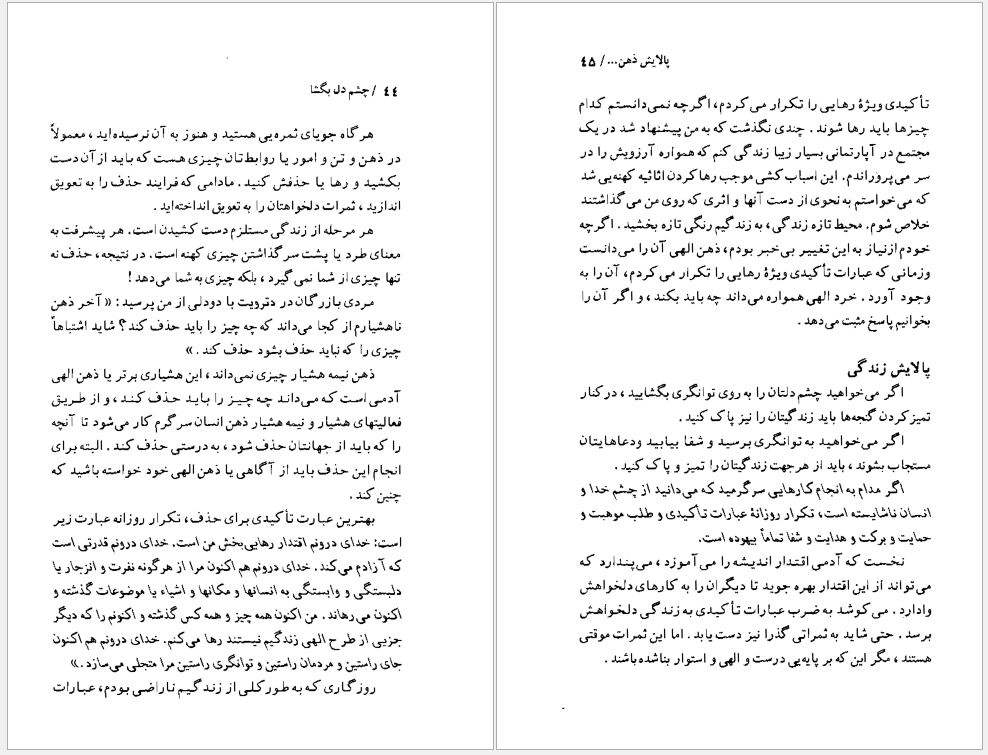 ۴۴ / چشم دل بگشا
هر گاه جویای ثمره‌یی هستید و هنوز به آن نرسیده‌اید ، معمولاً
در ذهن و تن و امور یا روابط‌تان چیزی هست که باید از آن دست
بکشید و رها یا حذفش کنید . مادامی که فرایند حذف را به تعویق
اندازید ، ثمرات دلخواهتان را به تعویق انداخته‌اید .
هر مرحله از زندگی مستلزم دست کشیدن است. هر پیشرفت به
معنای طرد یا پشت سر گذاشتن چیزی کهنه است. در نتیجه، حذف نه
تنها چیزی از شما نمی گیرد ، بلکه چیزی به شما می‌دهد !
مردی بازرگان در دترویت با دودلی از من پرسید : « آخر ذهن
ناهشیارم از کجا می‌داند که چه چیز را باید حذف کند؟ شاید اشتباهاً
چیزی را که نباید حذف بشود حذف کند . »
ذهن نیمه هشیار چیزی نمی‌داند ، این هشیاری برتر یا ذهن الهی
آدمی است که می‌داند چه چیز را باید حذف کند ، و از طریق
فعالیتهای هشیار و نیمه هشیار ذهن انسان سر گرم کار می‌شود تا آنچه
را که باید از جهانتان حذف شود ، به درستی حذف کند . البته برای
انجام این حذف باید از آگاهی یا ذهن الهی خود خواسته باشید که
چنین کند .
بهترین عبارت تأکیدی برای حذف، تکرار روزانه عبارت زیر
است: خدای درونم اقتدار رهایی‌بخش من است. خدای درونم قدرتی است
که آزادم می‌کند. خدای درونم هم اکنون مرا از هرگونه نفرت و انزجار یا
دلبستگی و وابستگی به انسانها و مکانها و اشیاء یا موضوعات گذشته و
اکنون می‌رهاند. من اکنون همه چیز و همه کس گذشته و اکنونم را که دیگر
جزیی از طرح الهی زندگیم نیستند رها می‌کنم. خدای درونم هم اکنون
جای راستین و مردمان راستین و توانگری راستین مرا متجلی می‌سازد.»
روزگاری که به طور کلی از زندگیم ناراضی بودم، عبارات
پالایش ذهن... / ۴۵
تأکیدی ویژهٔ رهایی را تکرار می کردم، اگرچه نمی‌دانستم کدام
چیزها باید رها شوند . چندی نگذشت که به من پیشنهاد شد در یک
مجتمع در آپارتمانی بسیار زیبا زندگی کنم که همواره آرزویش را در
سر می‌پروراندم. این اسباب کشی موجب رها کردن اثاثیه کهنه‌یی شد
که می‌خواستم به نحوی از دست آنها و اثری که روی من می گذاشتند
خلاص شوم. محیط تازه زندگی، به زندگیم رنگی تازه بخشید . اگرچه
خودم از نیاز به این تغییر بی‌خبر بودم، ذهن الهی آن را می‌دانست
وزمانی که عبارات تأکیدی ویژهٔ رهایی را تکرار می کردم، آن را به
وجود آورد . خرد الهی همواره می‌داند چه باید بکند ، و اگر آن را
بخوانیم پاسخ مثبت می‌دهد .
پالایش زندگی
اگر می‌خواهید چشم دلتان را به روی توانگری بگشایید ، در کنار
تمیز کردن گنجه‌ها باید زندگیتان را نیز پاک کنید .
اگر می‌خواهید به توانگری برسید و شفا بیابید ودعاهایتان
مستجاب بشوند ، باید از هر جهت زندگیتان را تمیز و پاک کنید .
اگر مدام به انجام کارهایی سرگرمید که می‌دانید از چشم خدا و
انسان ناشایسته است، تکرار روزانهٔ عبارات تأکیدی و طلب موهبت و
حمایت و برکت و هدایت و شفا تماماً بیهوده است.
نخست که آدمی اقتدار اندیشه را می آموزد ، می‌پندارد که
می‌تواند از این اقتدار بهره جوید تا دیگران را به کارهای دلخواهش
وادارد . می کوشد به ضرب عبارات تأکیدی به زندگی دلخواهش
برسد . حتی شاید به ثمراتی گذرا نیز دست یابد . اما این ثمرات موقتی
هستند ، مگر این که بر پایه‌یی درست و الهی و استوار بنا شده باشند .